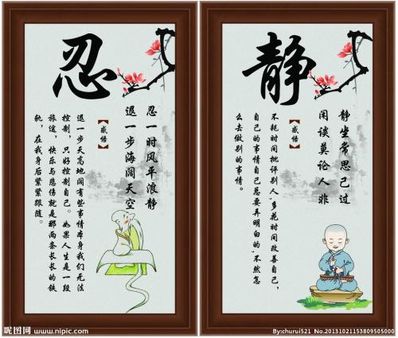 忍
忍一时风平浪静
退一步海阔天空
【感悟】
退一步天高地阔有些事情本身我们无法
控制，只好控制自己。如果人生是一段
旅途，快乐与悲伤就是那两条长长的铁
轨，在我身后紧紧跟随。
静
静坐常思己过
闲谈莫论人非
【感悟】
不耗时间批评别人，多花时间改善自己，
自己的事情自己总要弄明白的，不然怎
么去做别的事情。
昵图网
www.nipic.com
By:churui521 No.20131021153809505000